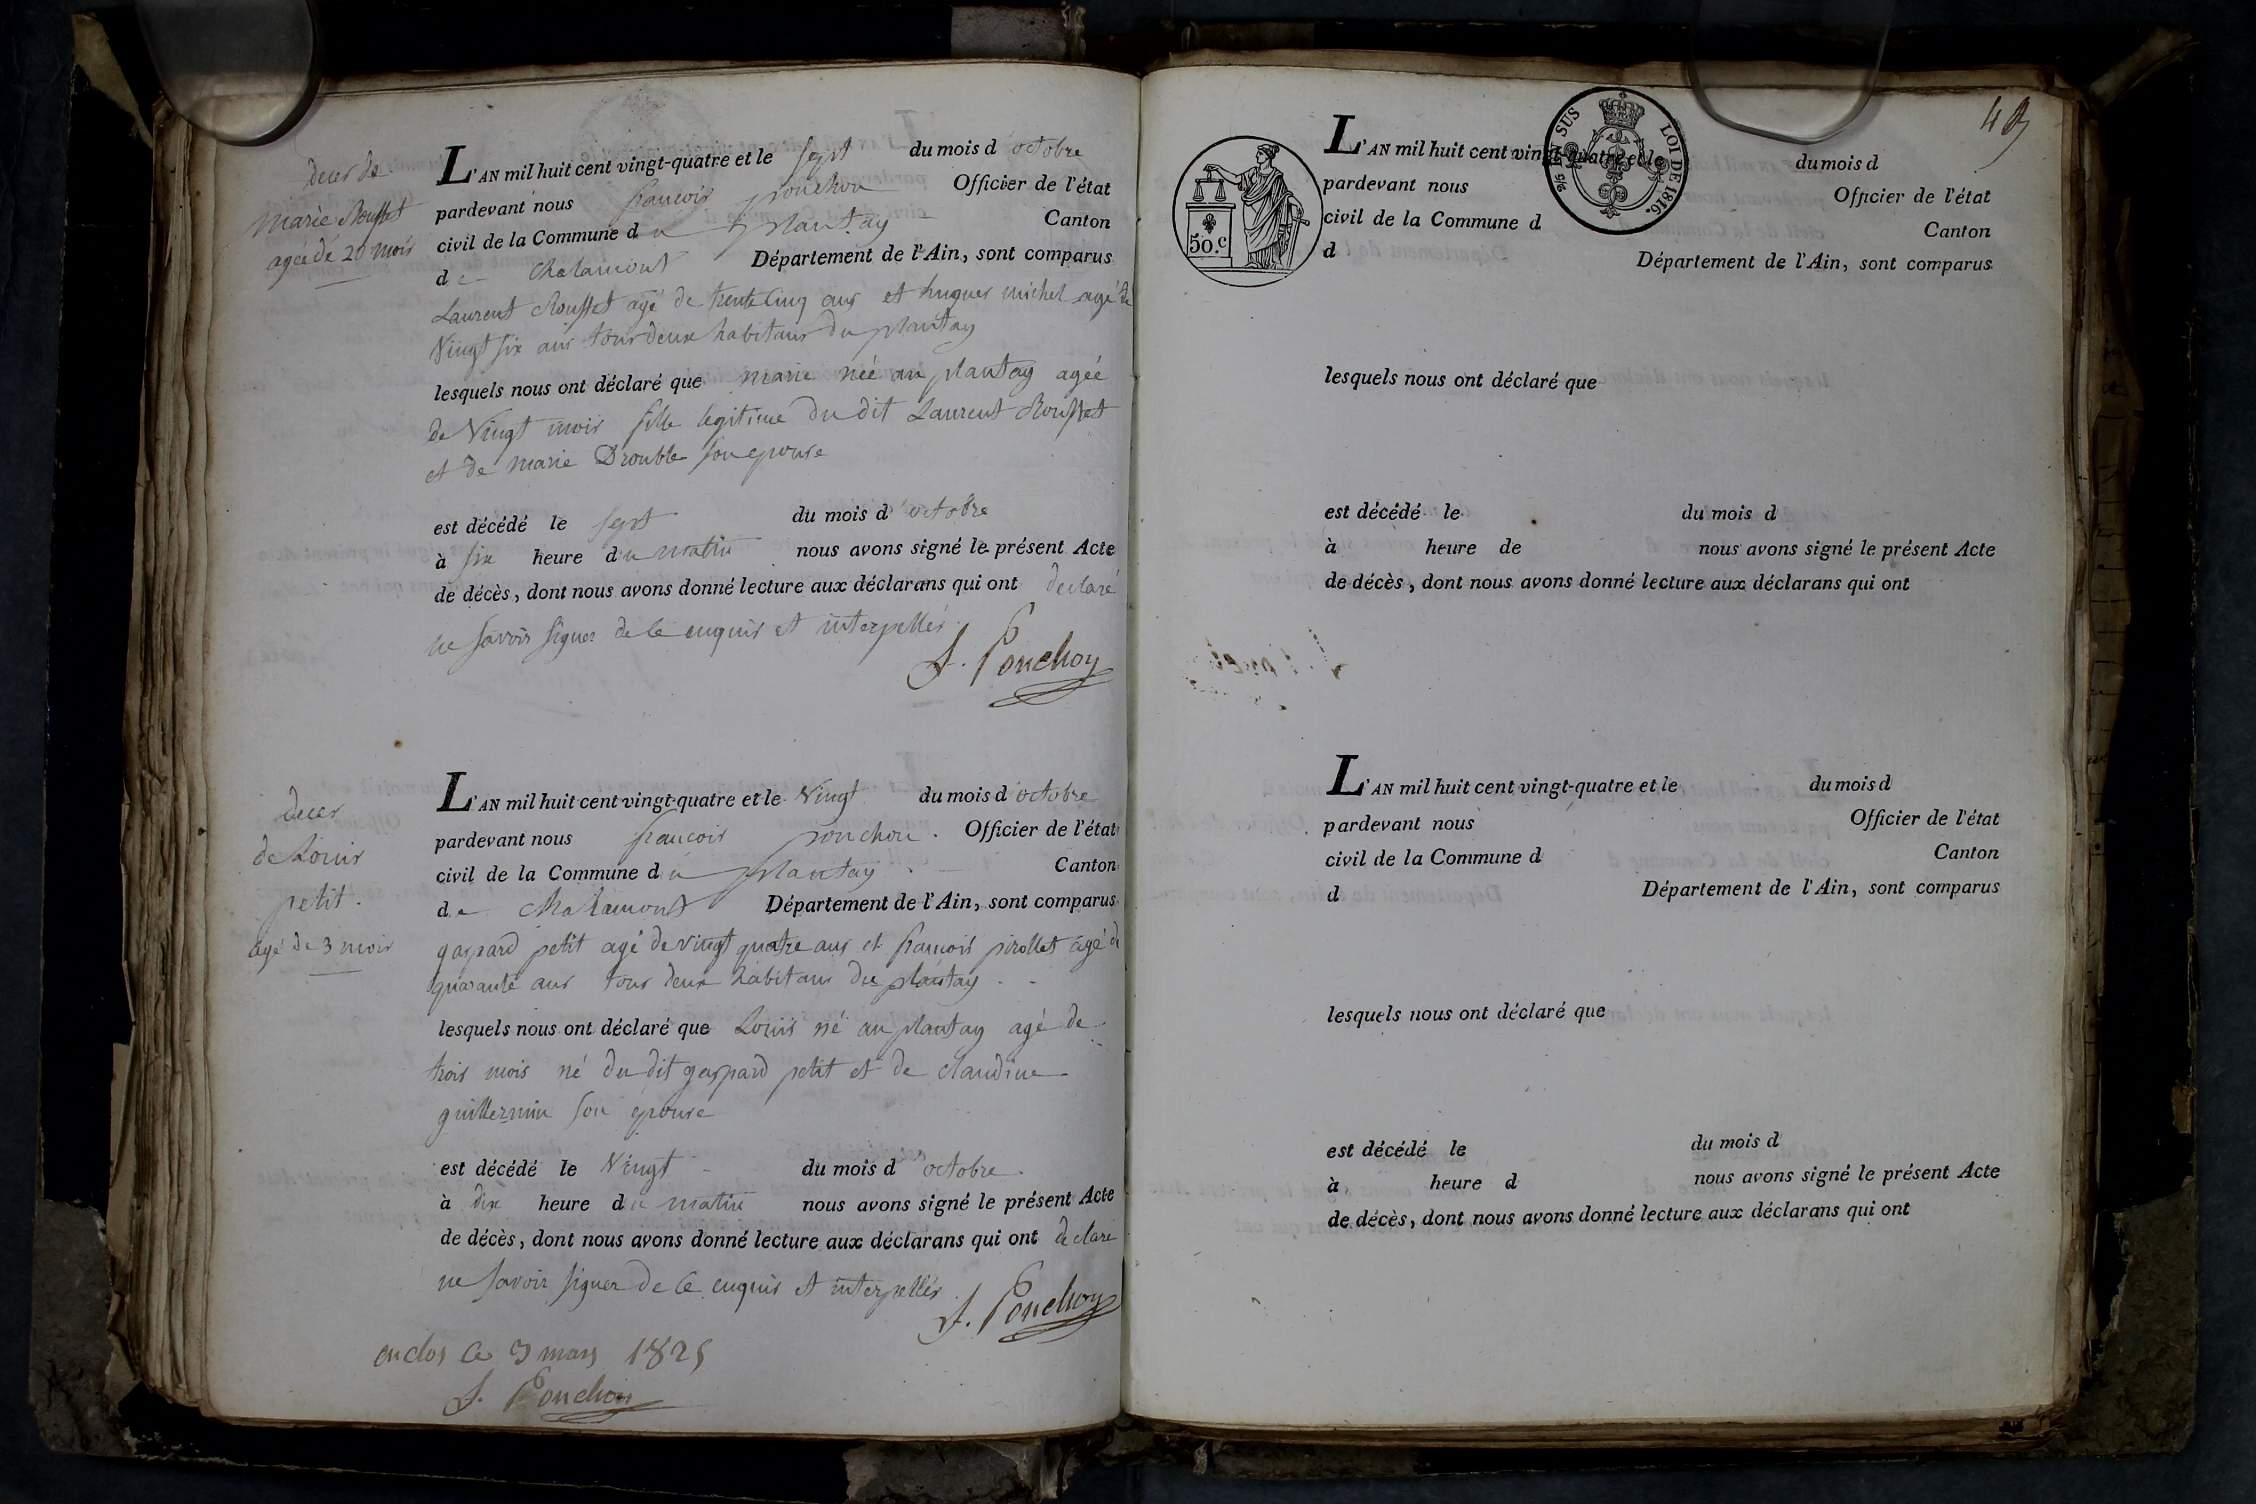 deces de
marie Rousset
agée de 20 mois
L'AN mil huit cent vingt-quatre et le sept du mois d'octobre
pardevant nous francois ponchon Officier de l'état
civil de la Commune du plantay Canton
de chalamont Département de l'Ain, sont comparus
Laurent Rousset agé de trente cinq ans et hugues michel agé de
Vingt six ans tous deux habitans du plantay
lesquels nous ont déclaré que marie née au plantay agée
de Vingt mois fille legitime du dit Laurent Rousset
et de marie Drouble son epouse
est décédé le sept du mois d'octobre
à six heure du matin nous avons signé le présent Acte
de décès, dont nous avons donné lecture aux déclarans qui ont declaré
ne savoir signer de ce enquis et interpellés
f. Ponchon
deces
de Louis
petit.
agé de 3 mois
L'AN mil huit cent vingt-quatre et le Vingt du mois d'octobre
pardevant nous francois ponchon. Officier de l'état
civil de la Commune du plantay Canton
de chalamont Département de l'Ain, sont comparus
gaspard petit agé de vingt quatre ans et francois pirollet agé de
quarante ans tous deux habitans du plantay
lesquels nous ont déclaré que Louis né au plantay agé de
trois mois né du dit gaspard petit et de claudine
guillermin son epouse
est décédé le Vingt du mois d'octobre
à dix heure du matin nous avons signé le présent Acte
de décès, dont nous avons donné lecture aux déclarans qui ont declaré
ne savoir signer de ce enquis et interpellés
f. Ponchon
en clos ce 3 mars 1825
f. Ponchon
50.c
EN SUS
LOI DE 1816.
L'AN mil huit cent vingt-quatre et le du mois d
pardevant nous Officier de l'état
civil de la Commune d Canton
d Département de l'Ain, sont comparus
lesquels nous ont déclaré que
est décédé le du mois d
à heure de nous avons signé le présent Acte
de décès, dont nous avons donné lecture aux déclarans qui ont
L'AN mil huit cent vingt-quatre et le du mois d
pardevant nous Officier de l'état
civil de la Commune d Canton
d Département de l'Ain, sont comparus
lesquels nous ont déclaré que
est décédé le du mois d
à heure d nous avons signé le présent Acte
de décès, dont nous avons donné lecture aux déclarans qui ont